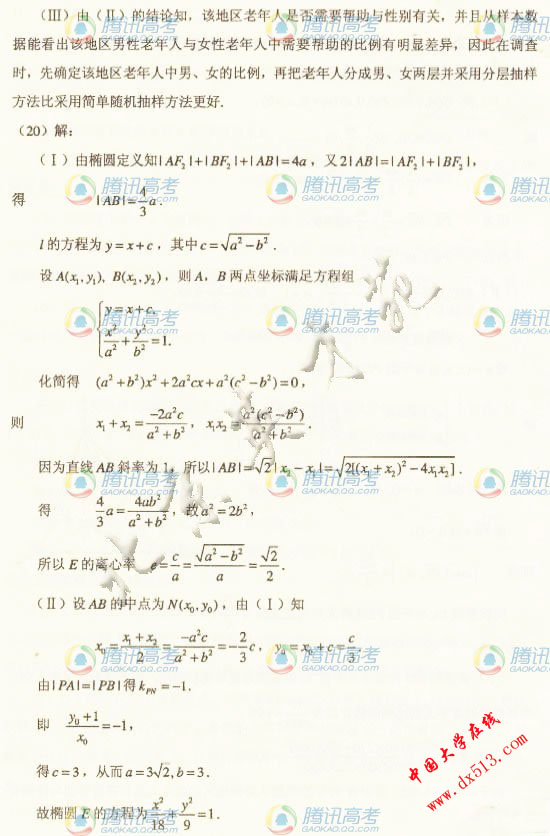 (III)由(Ⅱ)的结论知，该地区老年人是否需要帮助与性别有关，并且从样本数
据能看出该地区男性老年人与女性老年人中需要帮助的比例有明显差异，因此在调查
时，先确定该地区老年人中男、女的比例，再把老年人分成男、女两层并采用分层抽样
方法比采用简单随机抽样方法更好.
(20)解：
(Ⅰ)由椭圆定义知|AF₂|+|BF₂|+|AB|=4a，又2|AB|=|AF₂|+|BF₂|，
得 |AB|=4/3 a.
l的方程为y=x+c，其中c=√(a²-b²).
设A(x₁,y₁), B(x₂,y₂)，则A，B两点坐标满足方程组
{ y=x+c,
x²/a²+y²/b²=1.
化简得 (a²+b²)x²+2a²cx+a²(c²-b²)=0，
则 x₁+x₂=-2a²c/(a²+b²)，x₁x₂=a²(c²-b²)/(a²+b²).
因为直线AB斜率为1，所以|AB|=√2|x₂-x₁|=√(2[(x₁+x₂)²-4x₁x₂]).
得 4/3 a=4ab²/(a²+b²)，故a²=2b²，
所以E的离心率 e=c/a=√(a²-b²)/a=√2/2.
(Ⅱ)设AB的中点为N(x₀,y₀)，由(Ⅰ)知
x₀=(x₁+x₂)/2=-a²c/(a²+b²)=-2/3 c，y₀=x₀+c=c/3.
由|PA|=|PB|得k_PN=-1.
即 (y₀+1)/x₀=-1，
得c=3，从而a=3√2,b=3.
故椭圆E的方程为x²/18+y²/9=1.
腾讯高考
GAOKAO.QQ.COM
中国大学在线
www.dx513.com